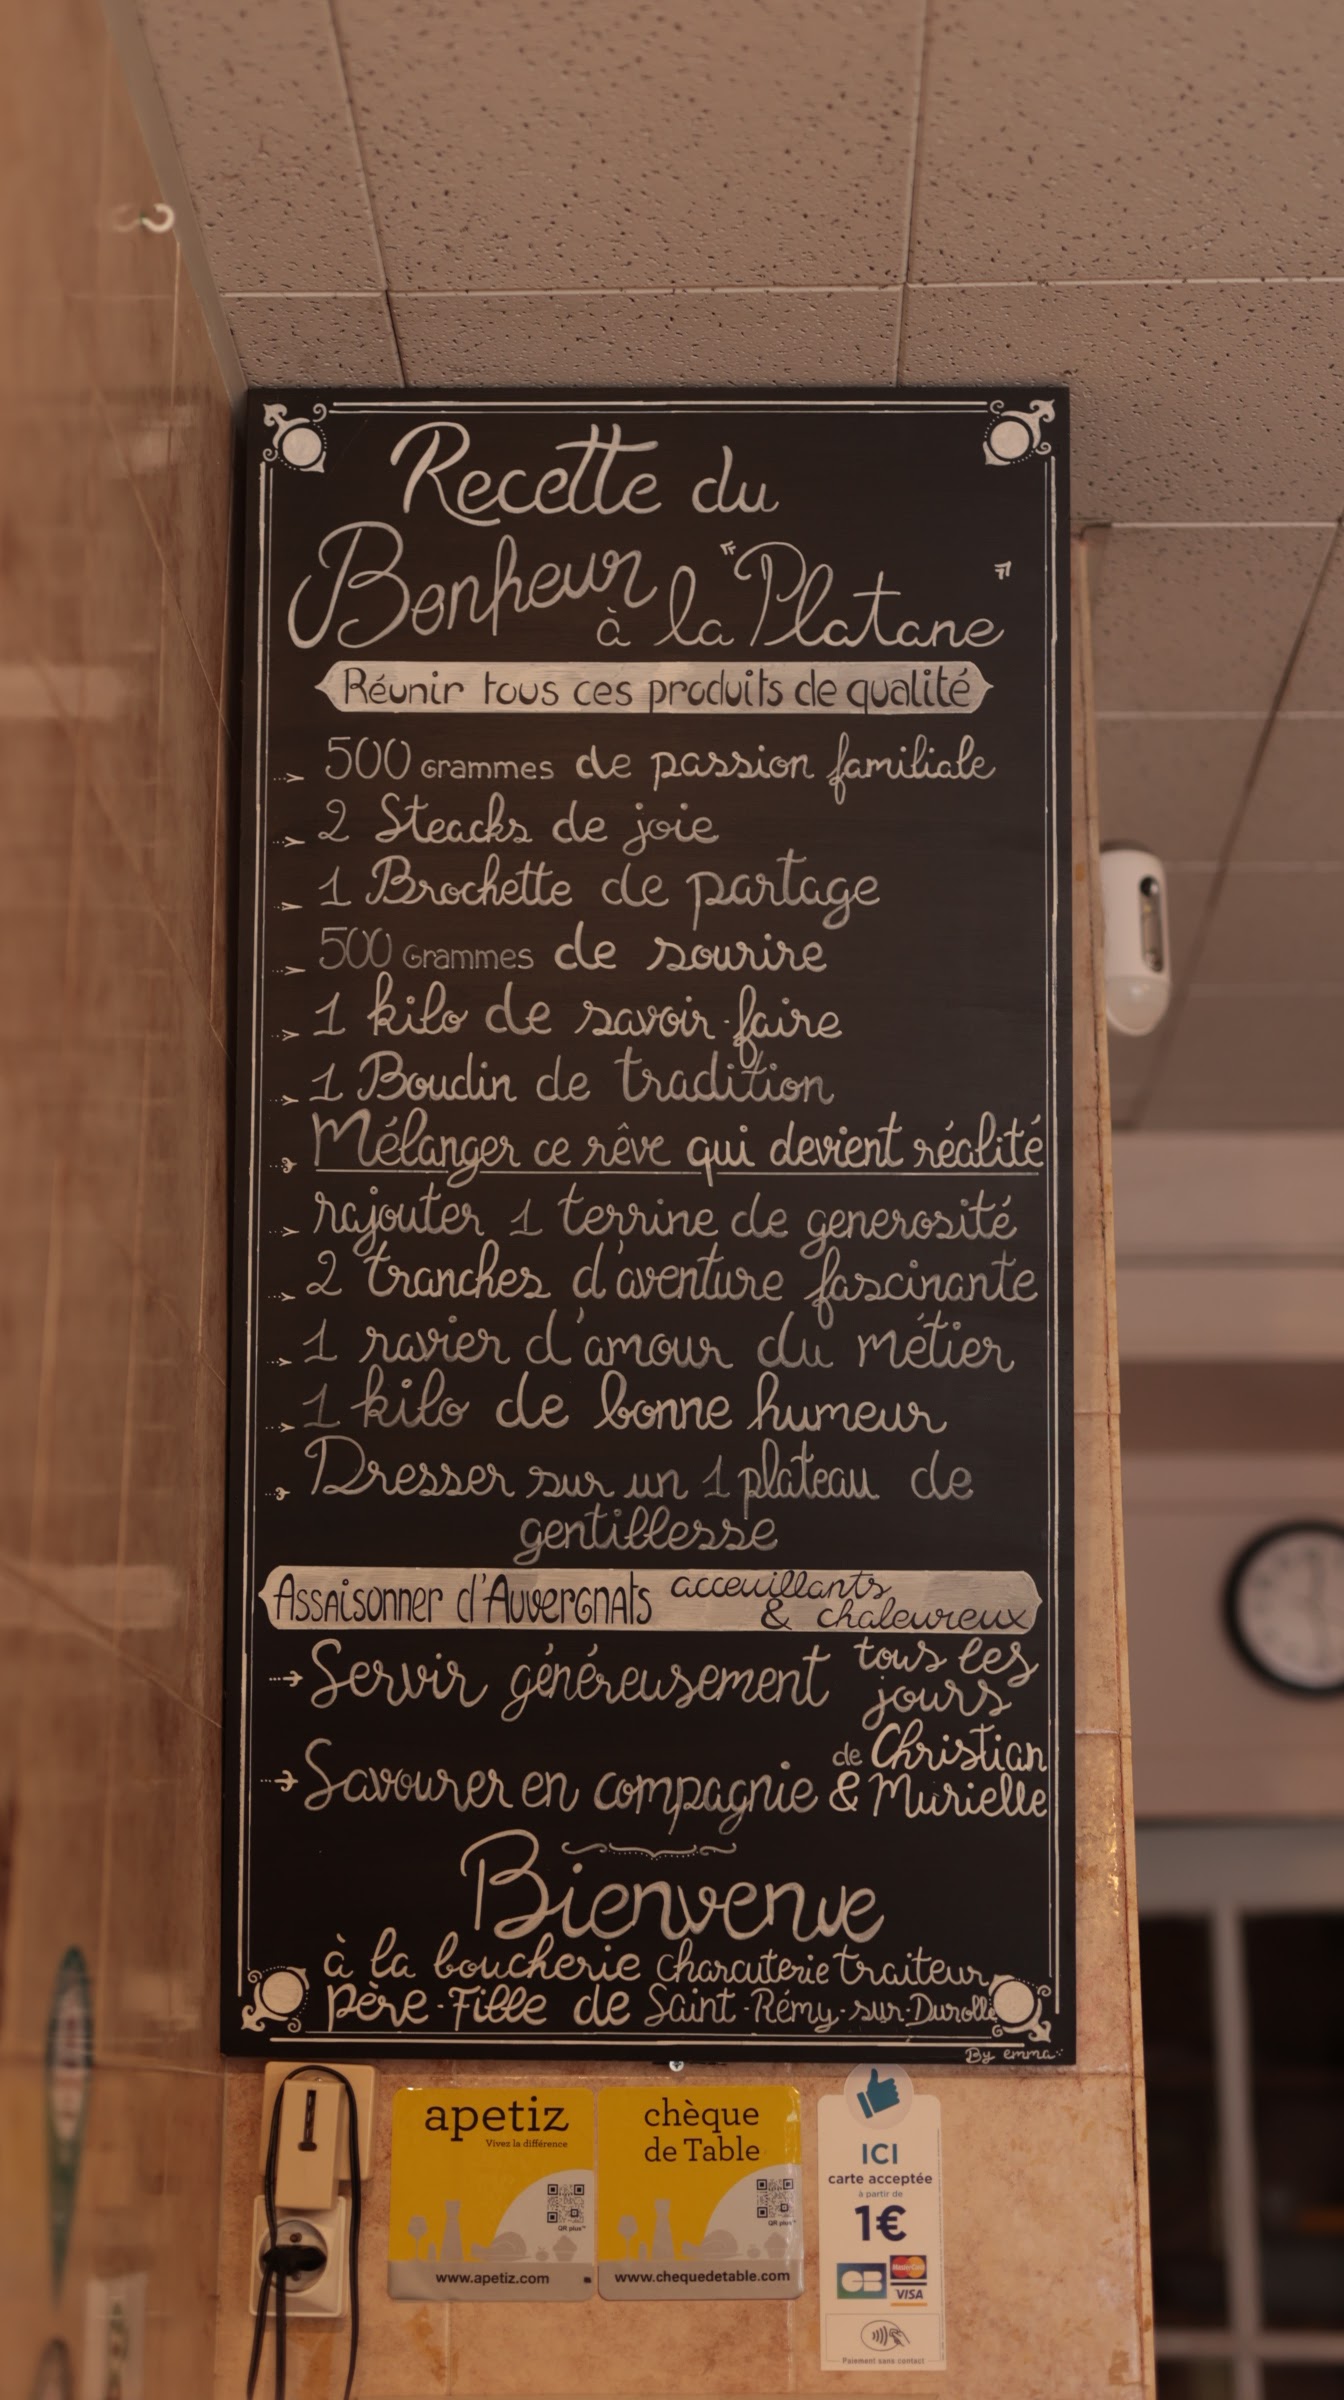 Recette du
Bonheur à la "Platane"
Réunir tous ces produits de qualité
500 Grammes de passion familiale
2 Steacks de joie
1 Brochette de partage
500 Grammes de sourire
1 kilo de savoir-faire
1 Boudin de tradition
Mélanger ce rêve qui devient réalité
rajouter 1 terrine de generosité
2 tranches d'aventure fascinante
1 ravier d'amour du métier
1 kilo de bonne humeur
Dresser sur un 1 plateau de
gentillesse
Assaisonner d'Auvergnats acceuillants
& chaleureux
Servir généreusement tous les
jours
Savourer en compagnie de Christian
& Murielle
Bienvenue
à la boucherie charcuterie traiteur
Père-Fille de Saint-Rémy-sur-Durolle
By emma
apetiz
Vivez la différence
QR plus
www.apetiz.com
chèque
de Table
QR plus
www.chequedetable.com
ICI
carte acceptée
à partir de
1€
CB MasterCard
VISA
Paiement sans contact